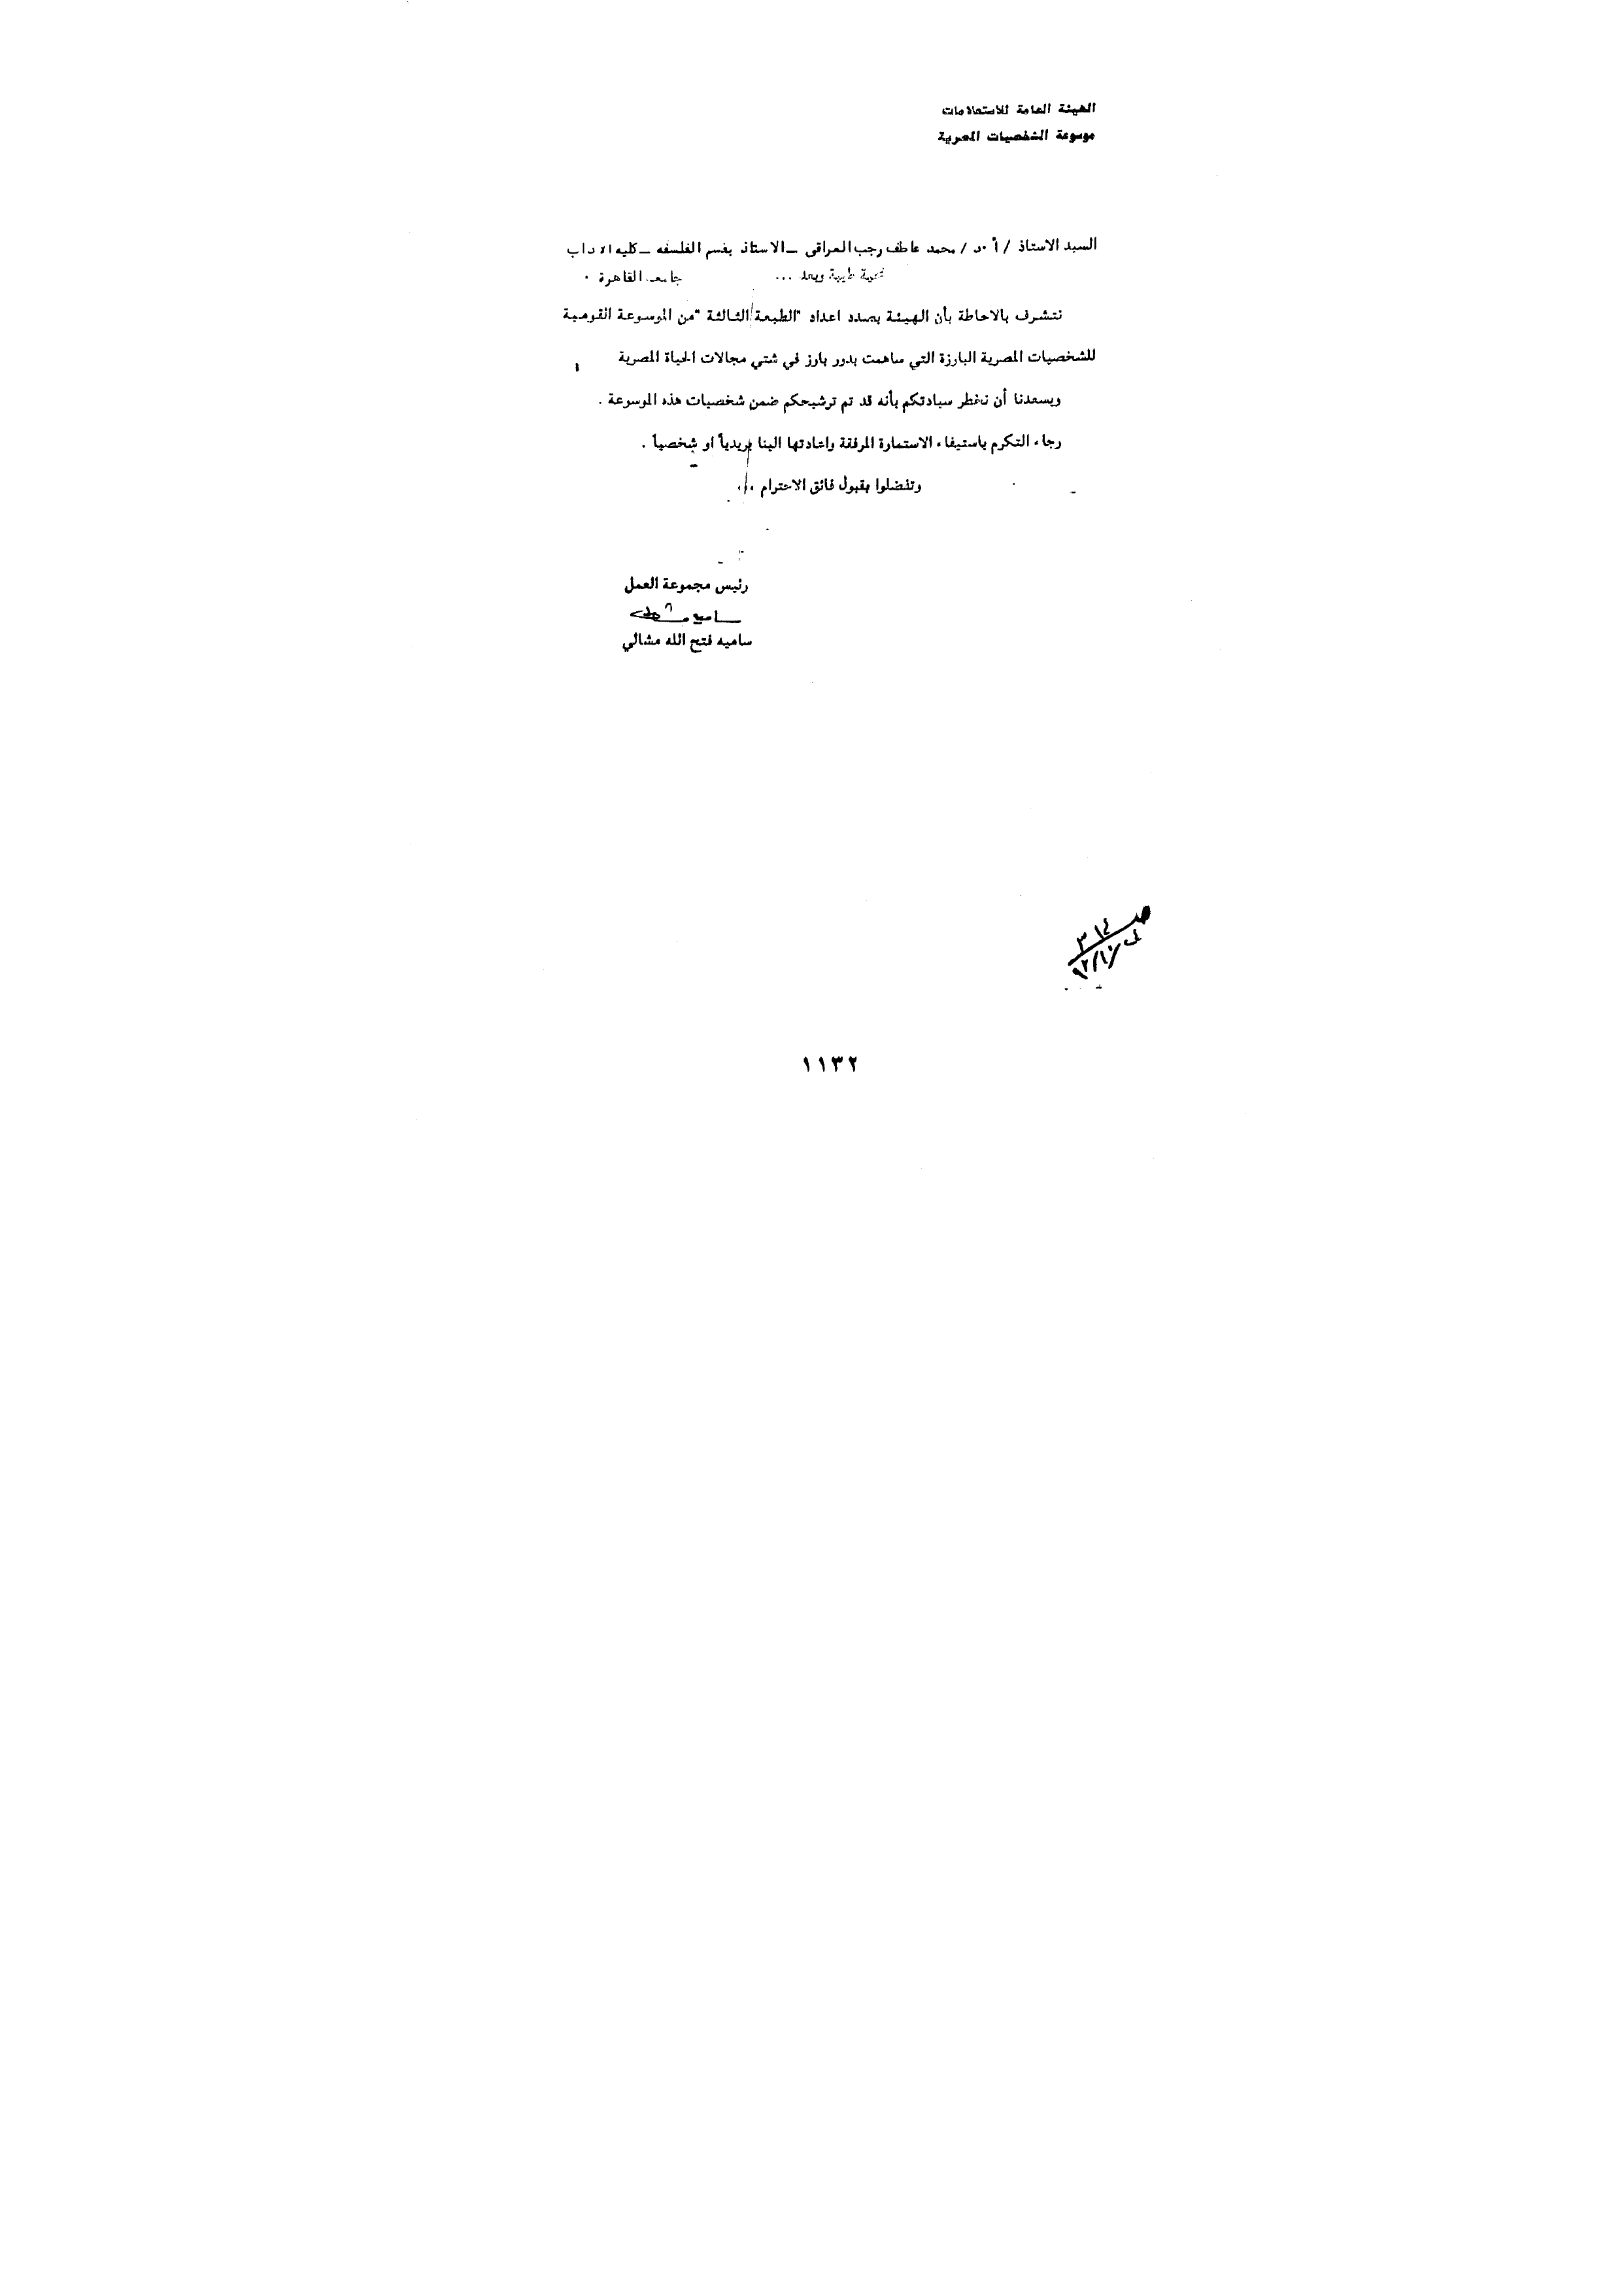 الهيئة العامة للاستعلامات
موسوعة الشخصيات المصرية
السيد الاستاذ / أ ٠د / محمد عاطف رجب العراقى ــ الاستاذ بقسم الفلسفه ــ كليه الاداب
تحية طيبة وبعد ... جامعه القاهرة ٠
نتشرف بالاحاطة بأن الهيئة بصدد اعداد "الطبعة الثالثة" من الموسوعة القومية
للشخصيات المصرية البارزة التي ساهمت بدور بارز في شتي مجالات الحياة المصرية
ويسعدنا أن نخطر سيادتكم بأنه قد تم ترشيحكم ضمن شخصيات هذه الموسوعة .
رجاء التكرم باستيفاء الاستمارة المرفقة واعادتها الينا بريدياً او شخصياً .
وتفضلوا بقبول فائق الاحترام ،،
رئيس مجموعة العمل
ساميه فتح الله مشالي
١١٣٢